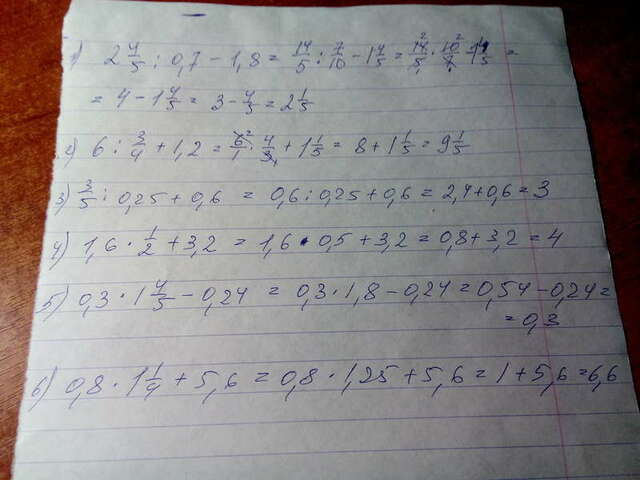 1) 2 4/5 : 0,7 - 1,8 = 14/5 : 7/10 - 1 4/5 = 14/5 · 10/7 - 1 4/5 =
= 4 - 1 4/5 = 3 - 4/5 = 2 1/5
2) 6 : 3/4 + 1,2 = 6/1 · 4/3 + 1 1/5 = 8 + 1 1/5 = 9 1/5
3) 3/5 : 0,25 + 0,6 = 0,6 : 0,25 + 0,6 = 2,4 + 0,6 = 3
4) 1,6 · 1/2 + 3,2 = 1,6 · 0,5 + 3,2 = 0,8 + 3,2 = 4
5) 0,3 · 1 4/5 - 0,24 = 0,3 · 1,8 - 0,24 = 0,54 - 0,24 =
= 0,3
6) 0,8 · 1 1/4 + 5,6 = 0,8 · 1,25 + 5,6 = 1 + 5,6 = 6,6